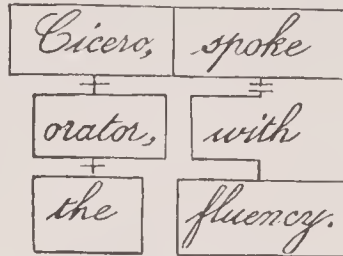 Cicero, spoke
orator, with
the fluency.